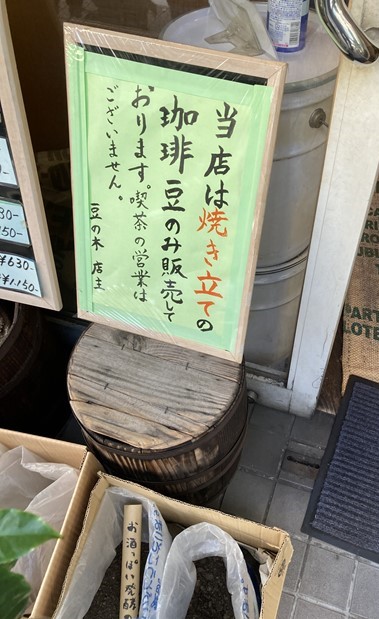 当店は焼き立ての
珈琲豆のみ販売して
おります。喫茶の営業は
ございません。
豆の木 店主
30-
50-
¥630-
¥1,150-
PART
LOTE
お酒っぱい発酵の